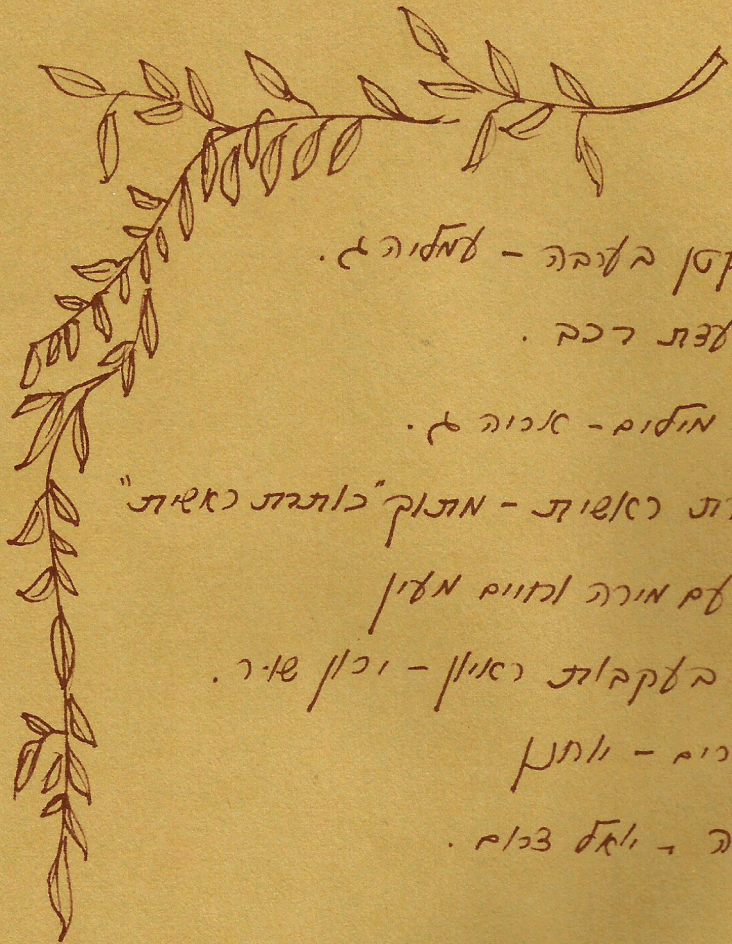 קטן בערבה - עמליה ג.
ועדת רכב.
מילים - אריה ג.
רת ראשית - מתוך "כותרת ראשית"
עם מירה וחיים מעין
בעקבות ראיון - ירון שויר.
רים - יוחנן
ה - יואל דרום.